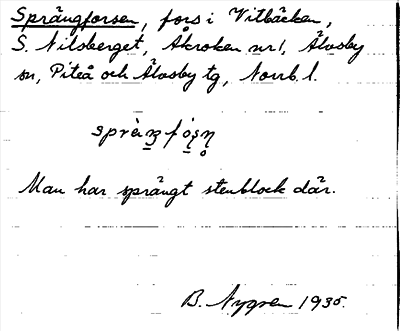 Sprängforsen, fors i Vitbäcken,
S. Nilsberget, Åkroken nr 1, Älvsby
sn, Piteå och Älvsby tg, Norrb. l.
Man har sprängt stenblock där.
B. Nygren 1935.